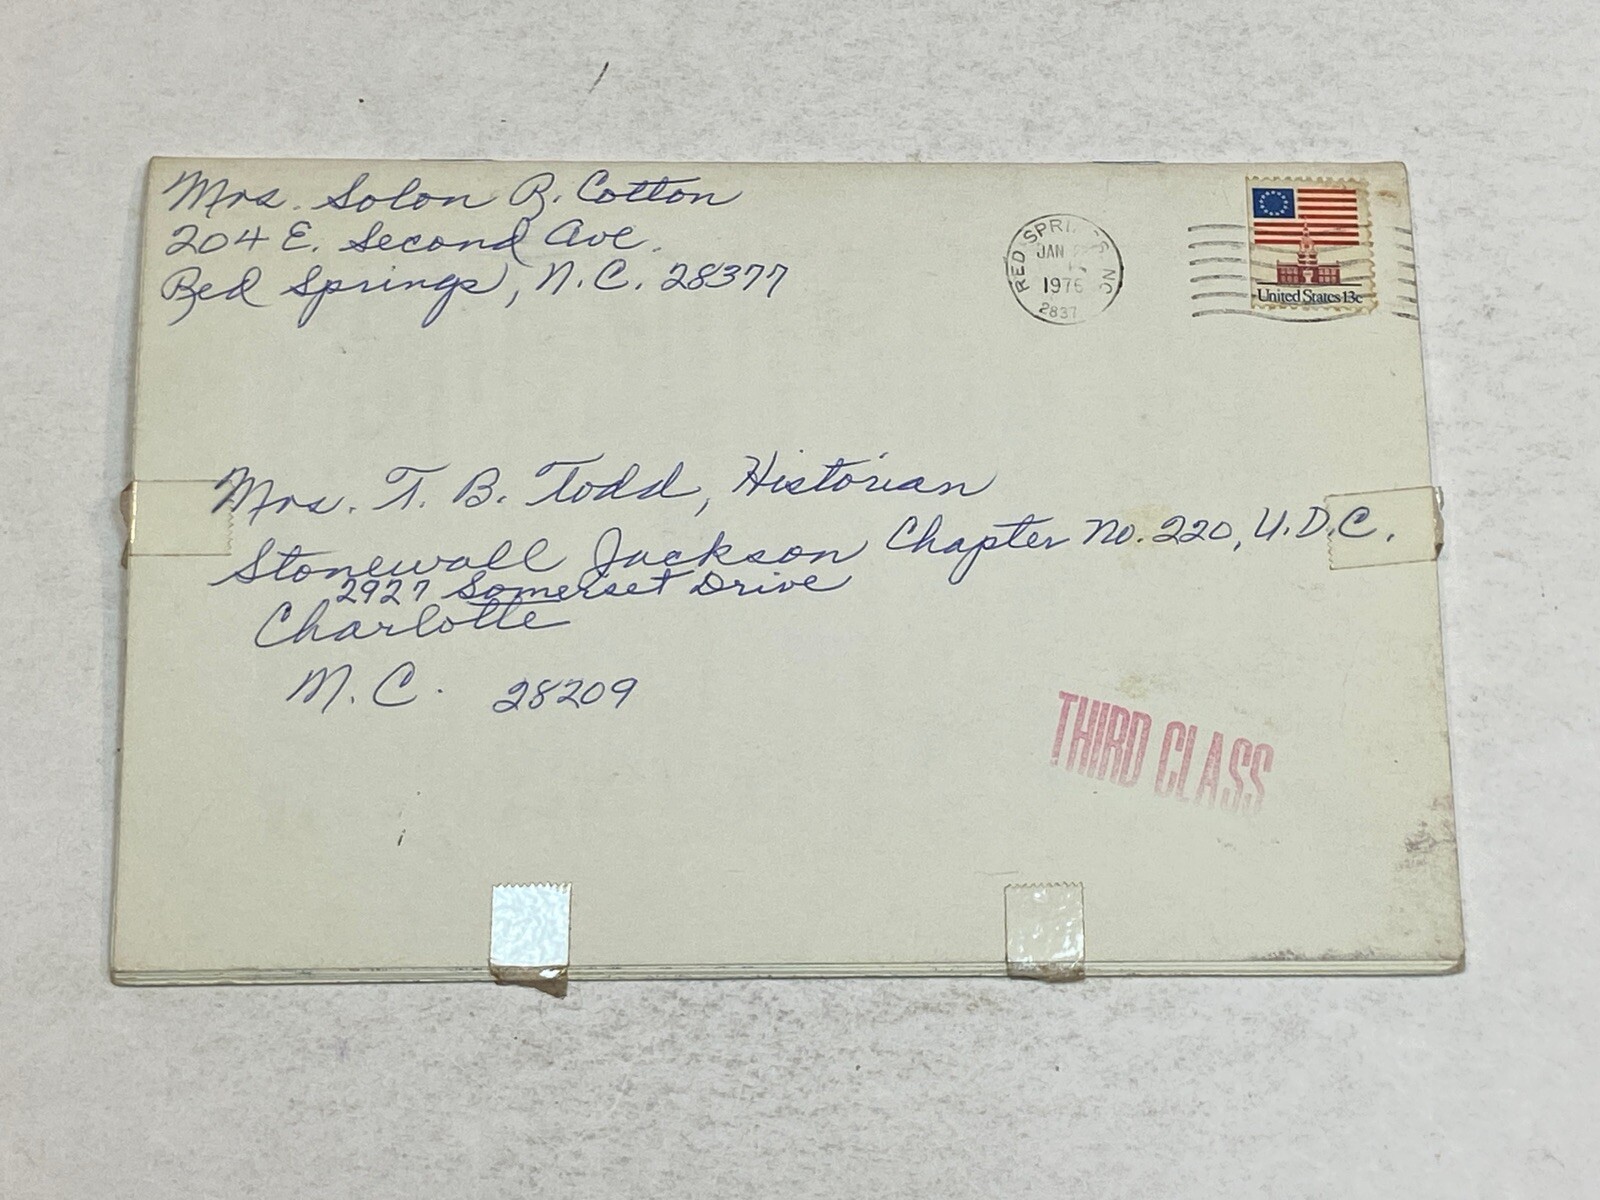 Mrs. Solon R. Cotton
204 E. Second Ave.
Red Springs, N.C. 28377
JAN
1976
United States 13c
Mrs. T. B. Todd, Historian
Stonewall Jackson Chapter No. 220, U.D.C.
2927 Somerset Drive
Charlotte
N.C. 28209
THIRD CLASS